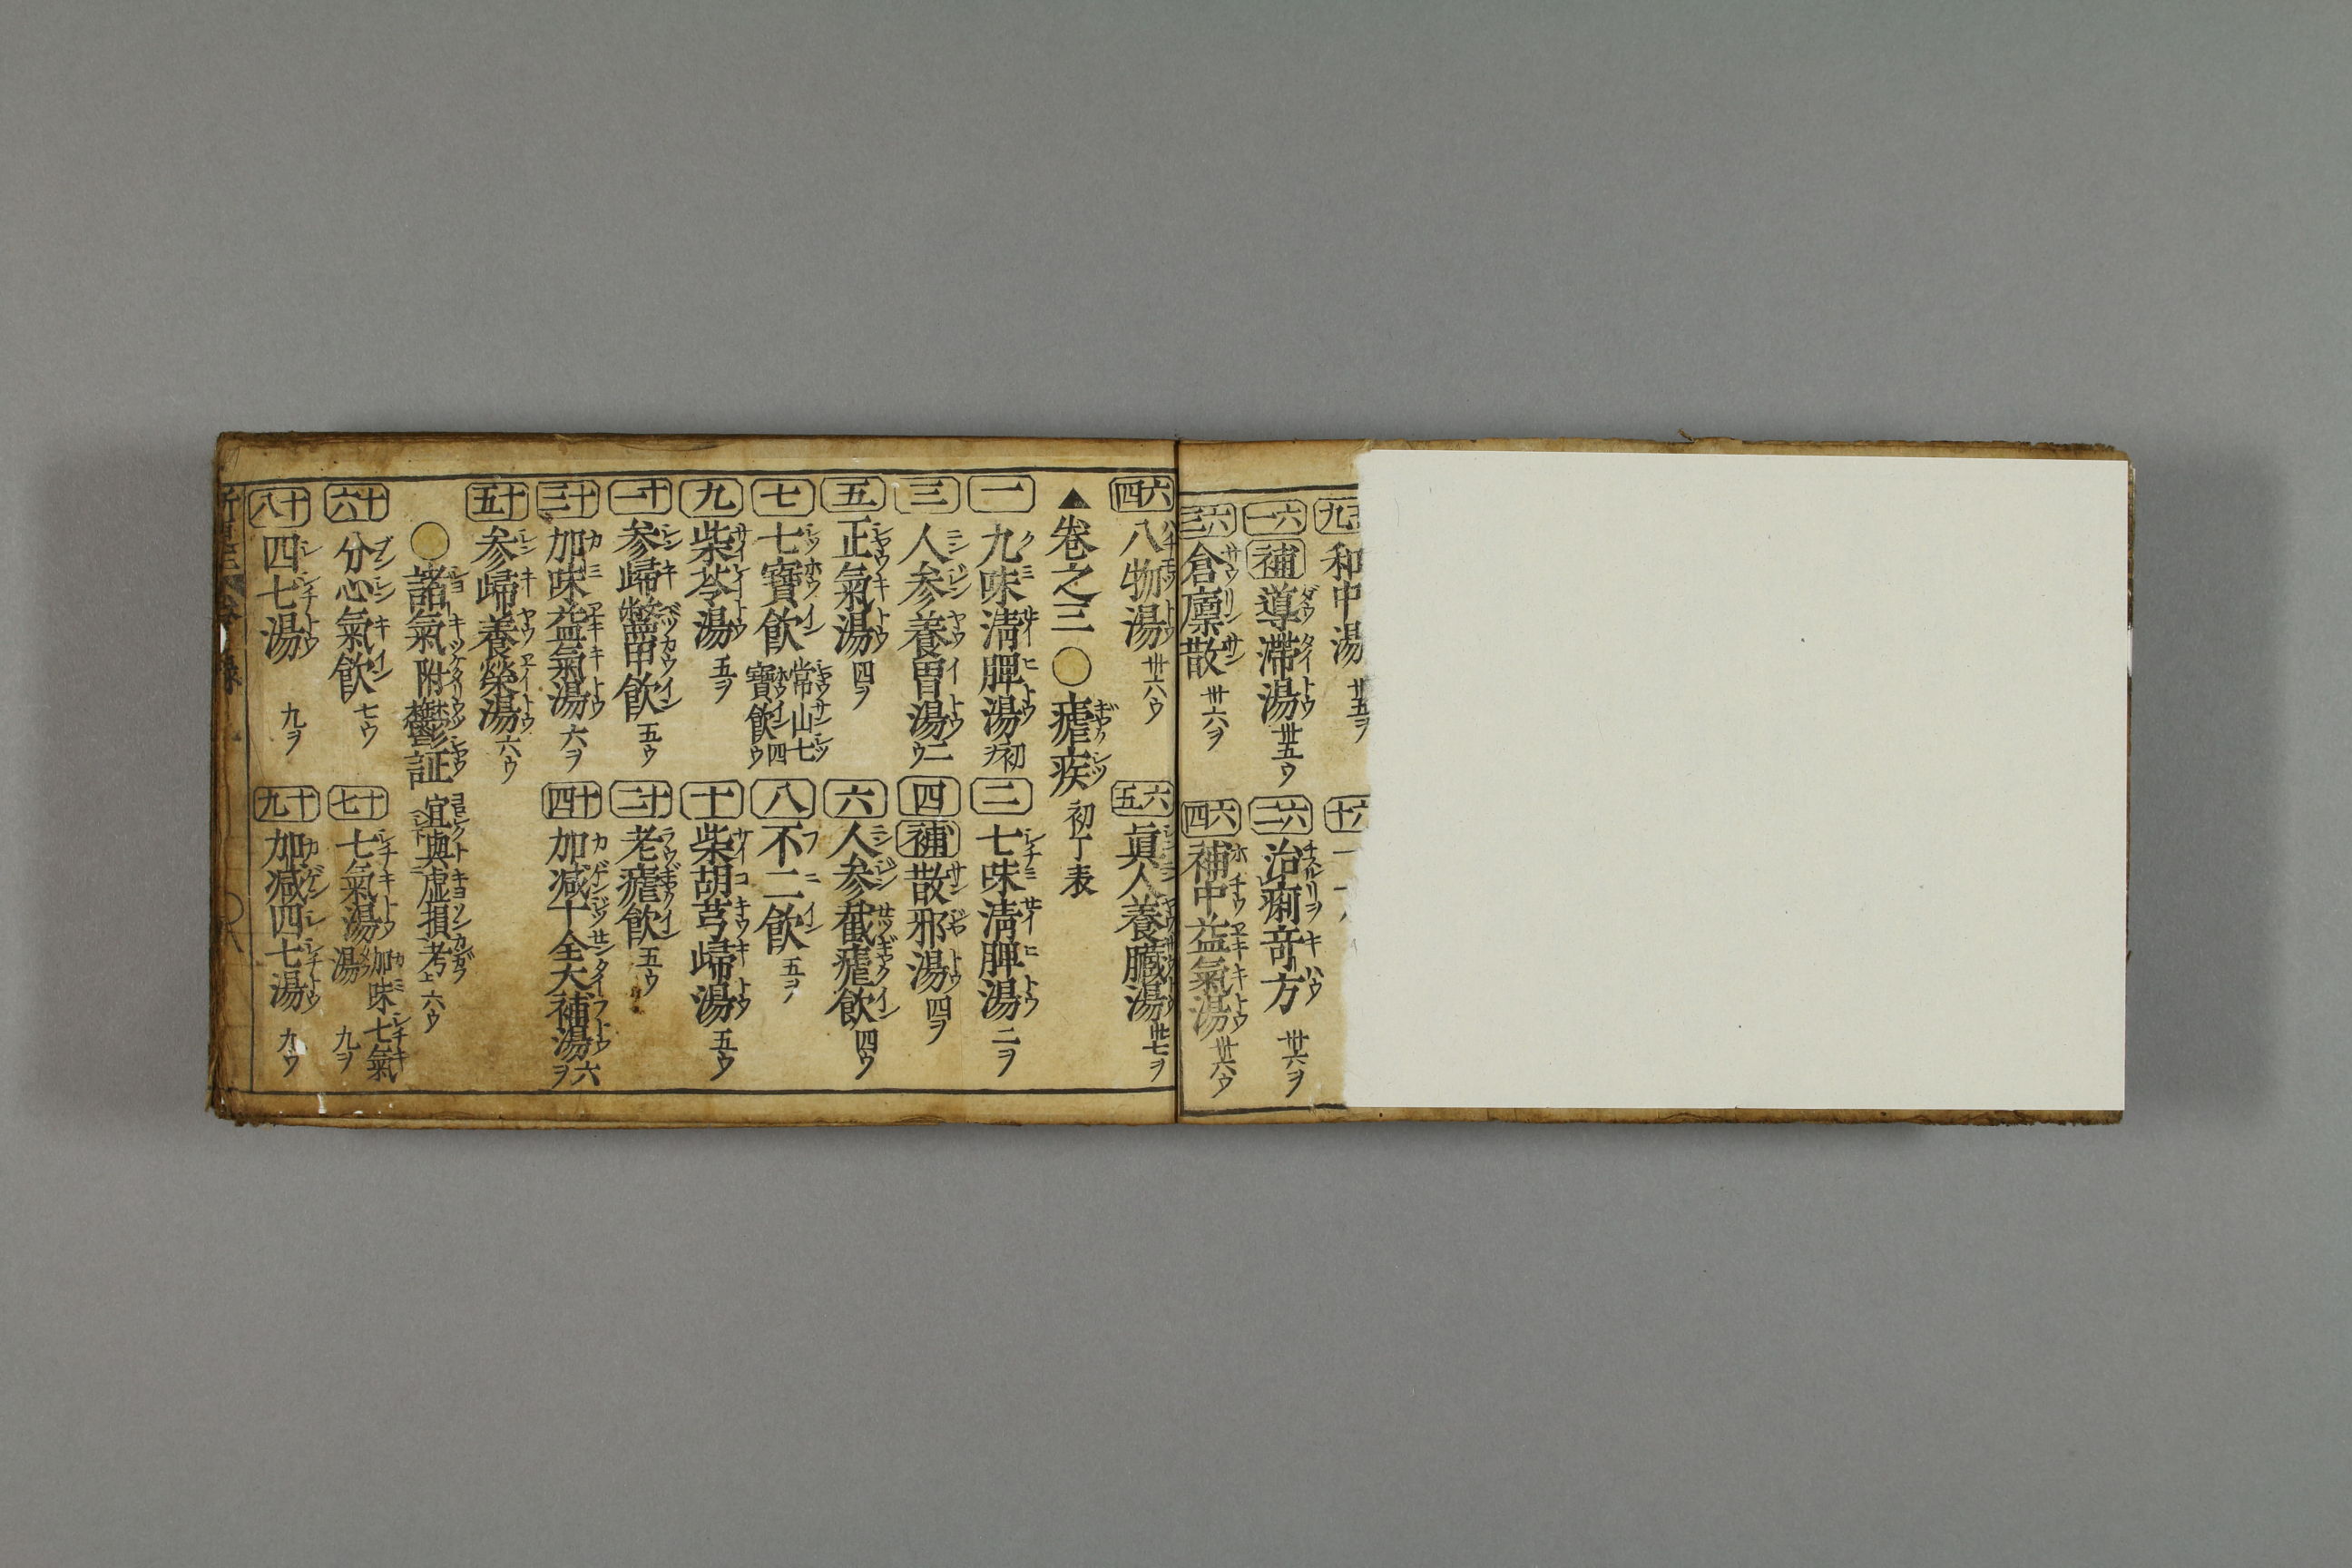 和中湯 卅五ヲ
六十一 補 導滯湯 卅五ウ
六十二 治痢竒方 卅六ヲ
六十三 倉廩散 卅六ヲ
六十四 補中益氣湯 卅六ウ
六十四 八物湯 卅六ウ
六十五 眞人養臓湯 卅七ヲ
▲卷之三 ○瘧疾 初丁表
一 九味清脾湯 初ヲ
二 七味清脾湯 二ヲ
三 人参養胃湯 二ウ
四 補 散邪湯 四ヲ
五 正氣湯 四ヲ
六 人参截瘧飲 四ウ
七 七寶飲 常山七寶飲 四ウ
八 不二飲 五ヲ
九 柴苓湯 五ヲ
十 柴胡芎歸湯 五ウ
十一 参歸鱉甲飲 五ウ
十二 老瘧飲 五ウ
十三 加味益氣湯 六ヲ
十四 加减十全大補湯 六ヲ
十五 参歸養榮湯 六ウ
○諸氣 附欝証 宜與虚損考上 六ウ
十六 分心氣飲 七ウ
十七 七氣湯 加味七氣湯 九ヲ
十八 四七湯 九ヲ
十九 加减四七湯 九ウ